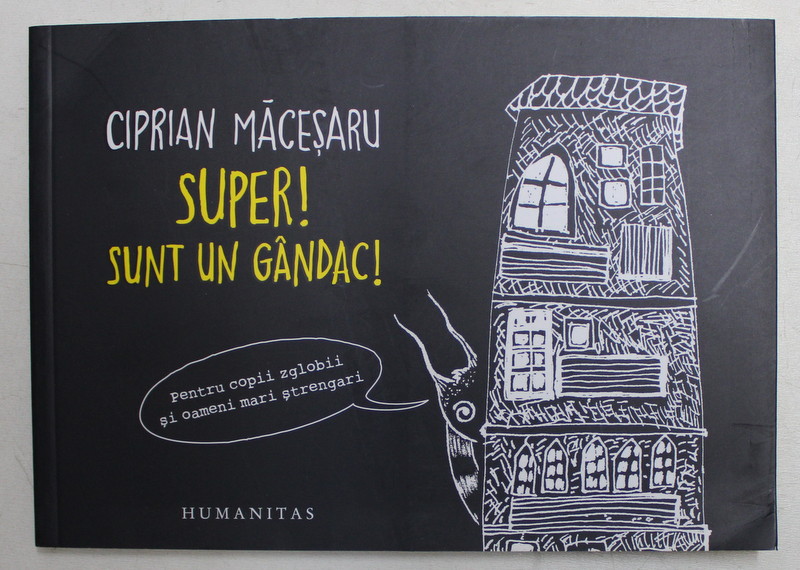 CIPRIAN MĂCEȘARU
SUPER!
SUNT UN GÂNDAC!
Pentru copii zglobii
și oameni mari ștrengari
HUMANITAS